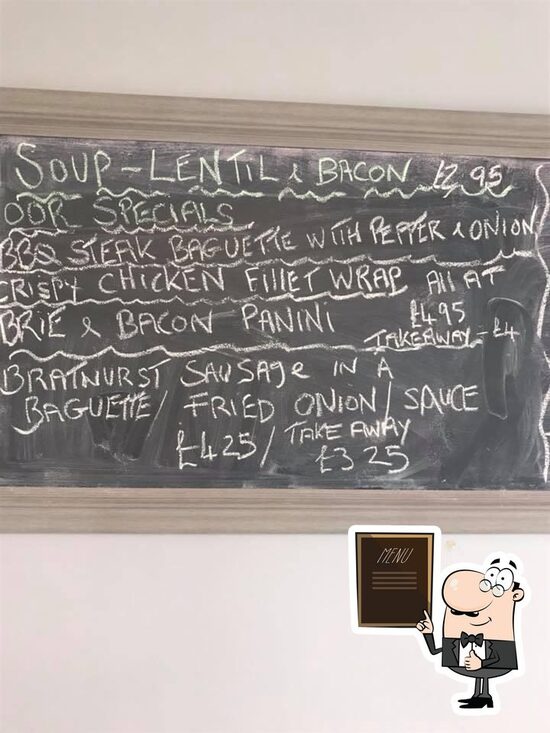 SOUP - LENTIL & BACON £2.95
OUR SPECIALS
BBQ STEAK BAGUETTE WITH PEPPER & ONION
CRISPY CHICKEN FILLET WRAP All AT
BRIE & BACON PANINI £4.95
TAKEAWAY - £4
BRATNURST SAUSAge IN A
BAGUETTE/ FRIED ONION/ SAUCE
£4.25/ TAKE AWAY
£3 25
MENU